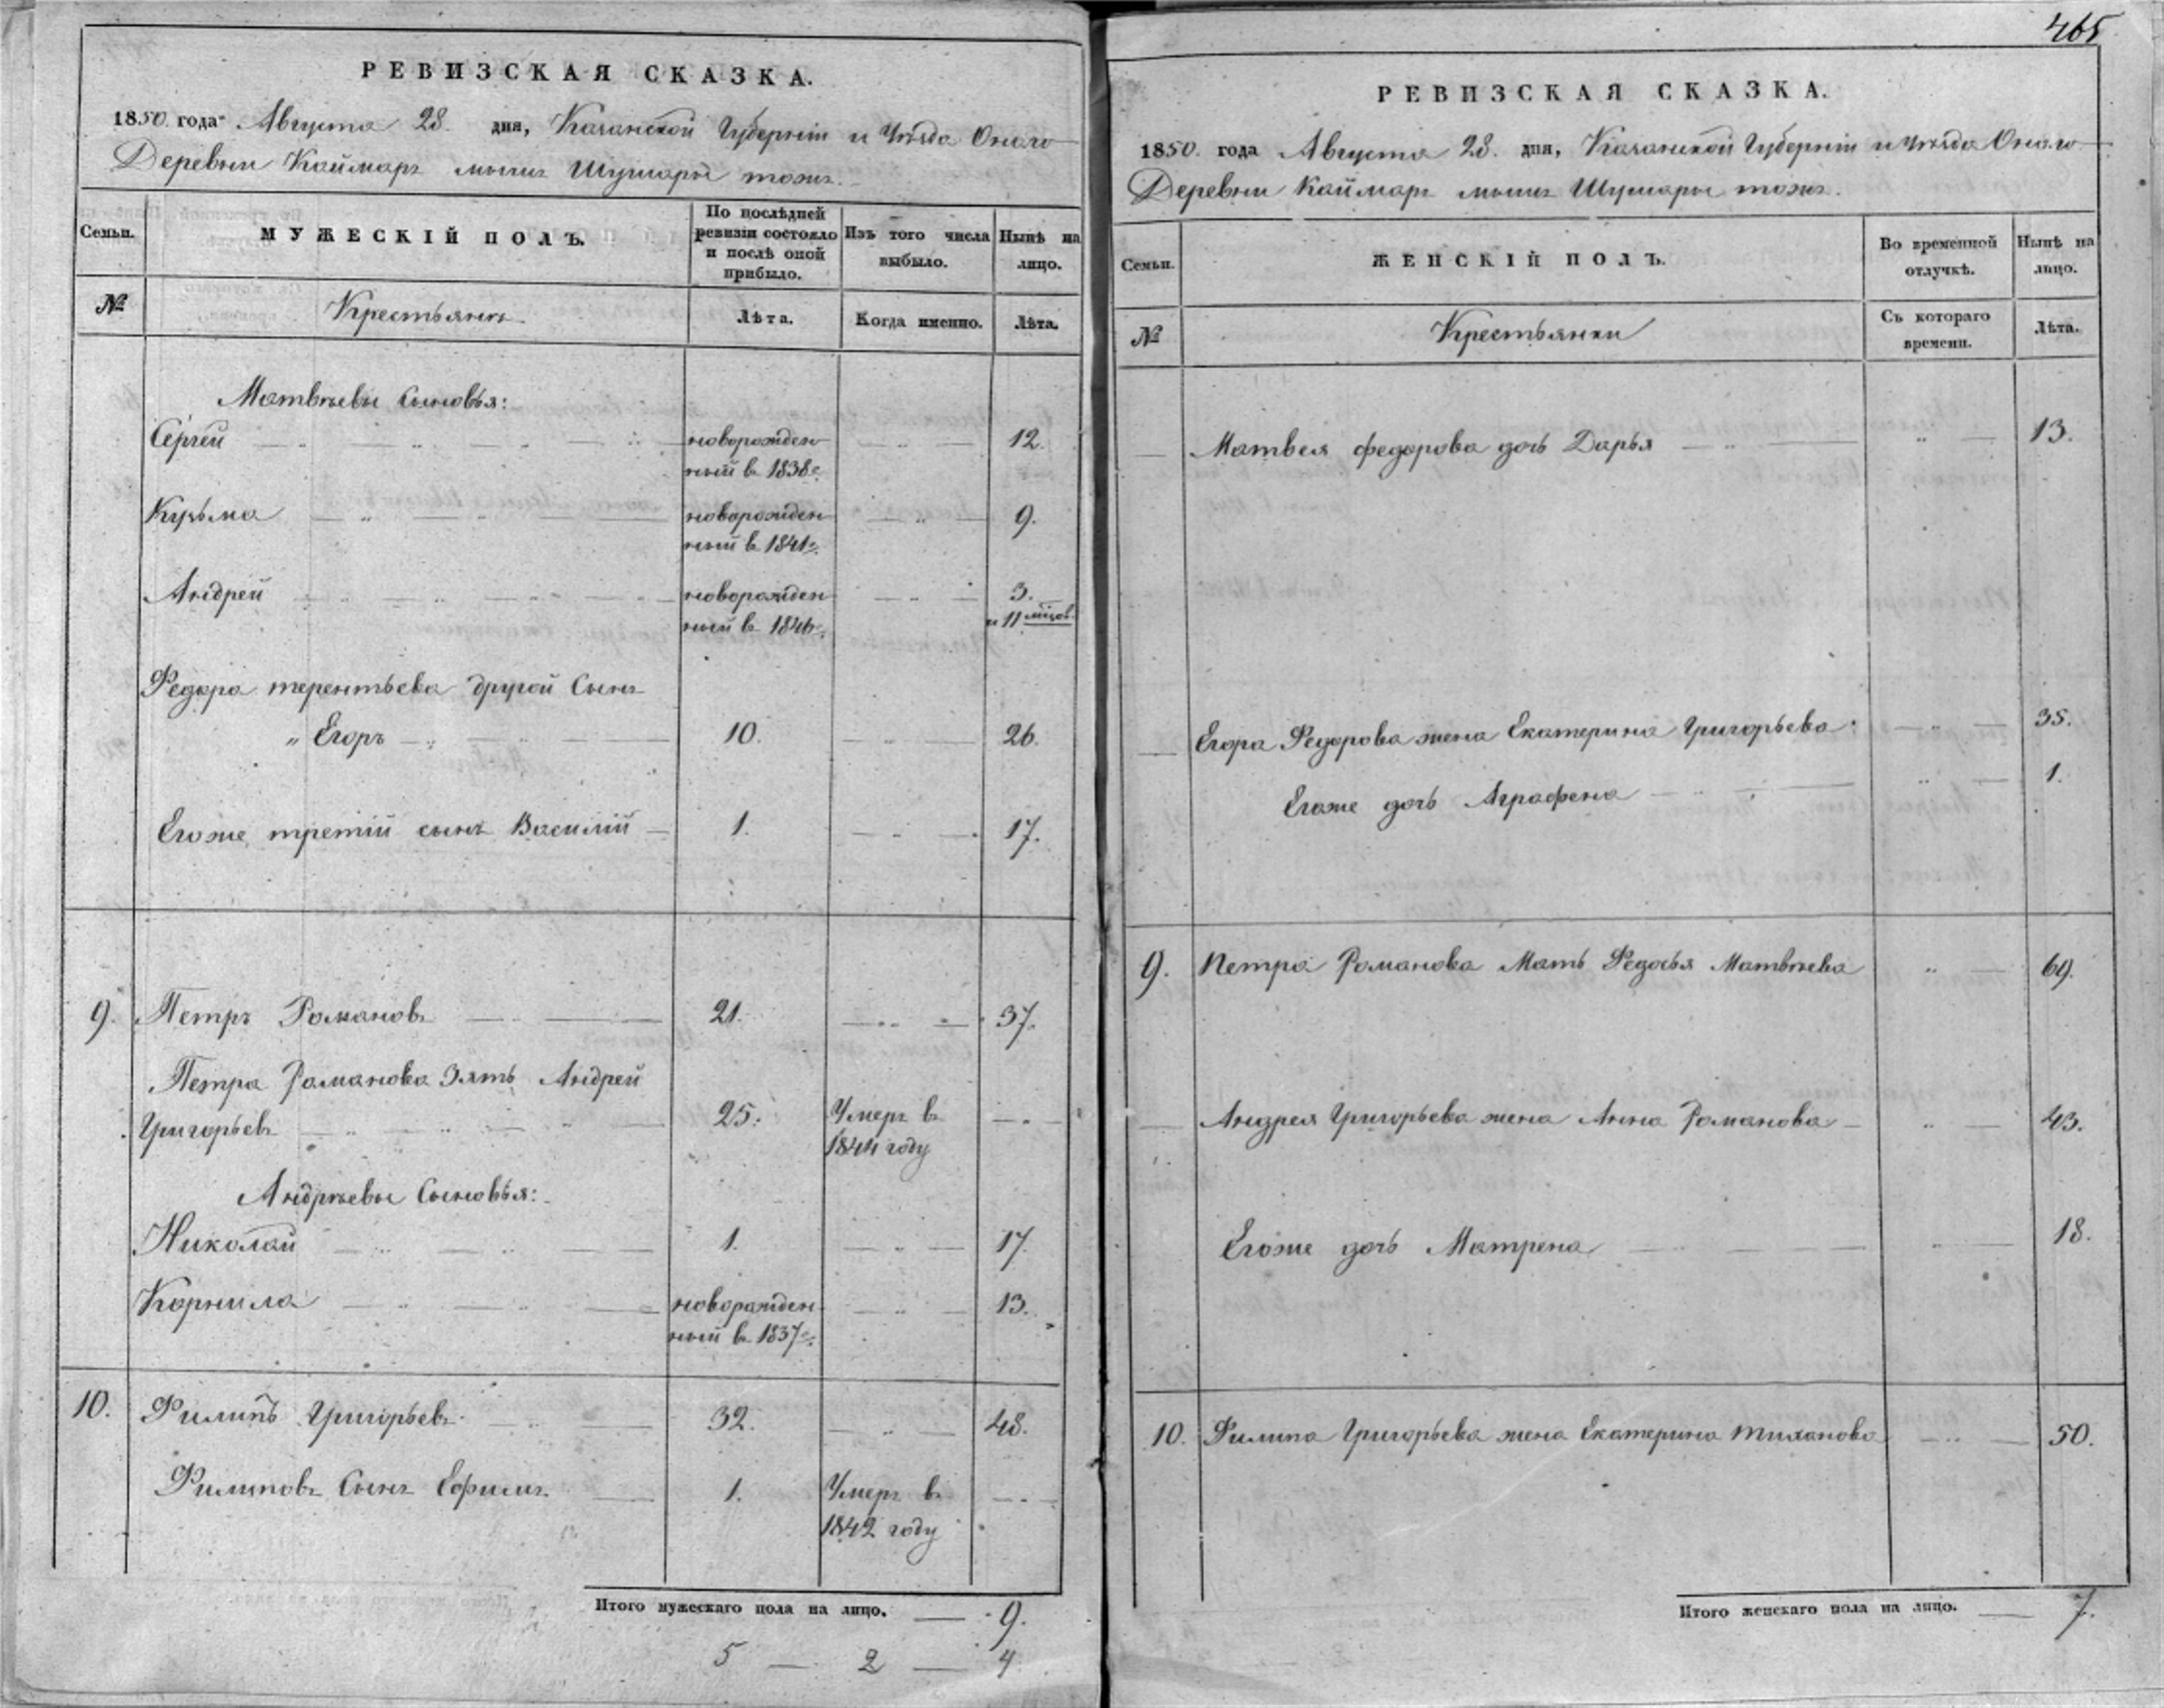 РЕВИЗСКАЯ СКАЗКА.
1850 года Августа 28. дня, Казанской Губерніи и Уѣзда Онаго
Деревни Каймаръ мышъ Шушары тожъ.
Семьи. МУЖЕСКІЙ ПОЛЪ. По послѣдней ревизіи состояло и послѣ оной прибыло. Изъ того числа выбыло. Нынѣ на лицо.
№ Крестьянъ Лѣта. Когда именно. Лѣта.
Матвѣевы Сыновья:
Сергей новорожден 12.
ный в 1838г.
Кузьма новорожден 9.
ный в 1841г.
Андрей новорожден 3.
ный в 1846г. и 11 мцов
Федора терентьева другой Сынъ
" Егоръ 10. 26.
Егоже третій сынъ Василій 1. 17.
9. Петръ Романовъ 21. 37.
Петра Романова Зять Андрей
Григорьевъ 25. Умеръ в
1844 году
Андрѣевы Сыновья:
Николай 1. 17.
Корнила новорожден 13.
ный в 1837г.
10. Филипъ Григорьевъ 32. 48.
Филиповъ Сынъ Ефимъ 1. Умеръ в
1842 году
Итого мужескаго пола на лицо. 9.
5 — 2 — 4
465
РЕВИЗСКАЯ СКАЗКА.
1850. года Августа 28. дня, Казанской Губерніи и Уѣзда Онаго
Деревни Каймаръ мышъ Шушары тожъ.
Семьи. ЖЕНСКІЙ ПОЛЪ. Во временной отлучкѣ. Нынѣ на лицо.
№ Крестьянки Съ котораго времени. Лѣта.
Матвея федорова дочь Дарья 13.
Егора Федорова жена Екатерина Григорьева 35.
Егоже дочь Аграфена 1.
9. Петра Романова Мать Федосья Матвѣева 69.
Андрея Григорьева жена Анна Романова 43.
Егоже дочь Матрена 18.
10. Филипа Григорьева жена Екатерина тиханова 50.
Итого женскаго пола на лицо. 7.